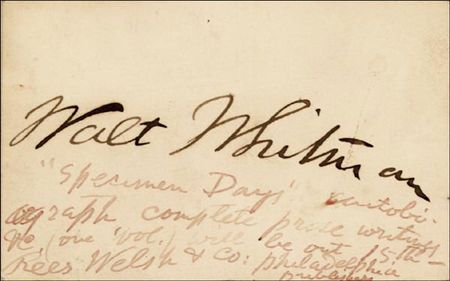 Walt Whitman
"Specimen Days" autobi-
ograph complete prose writings
&c (one vol.) will be out 15th-
Rees Welsh & Co: philadelphia
publishers